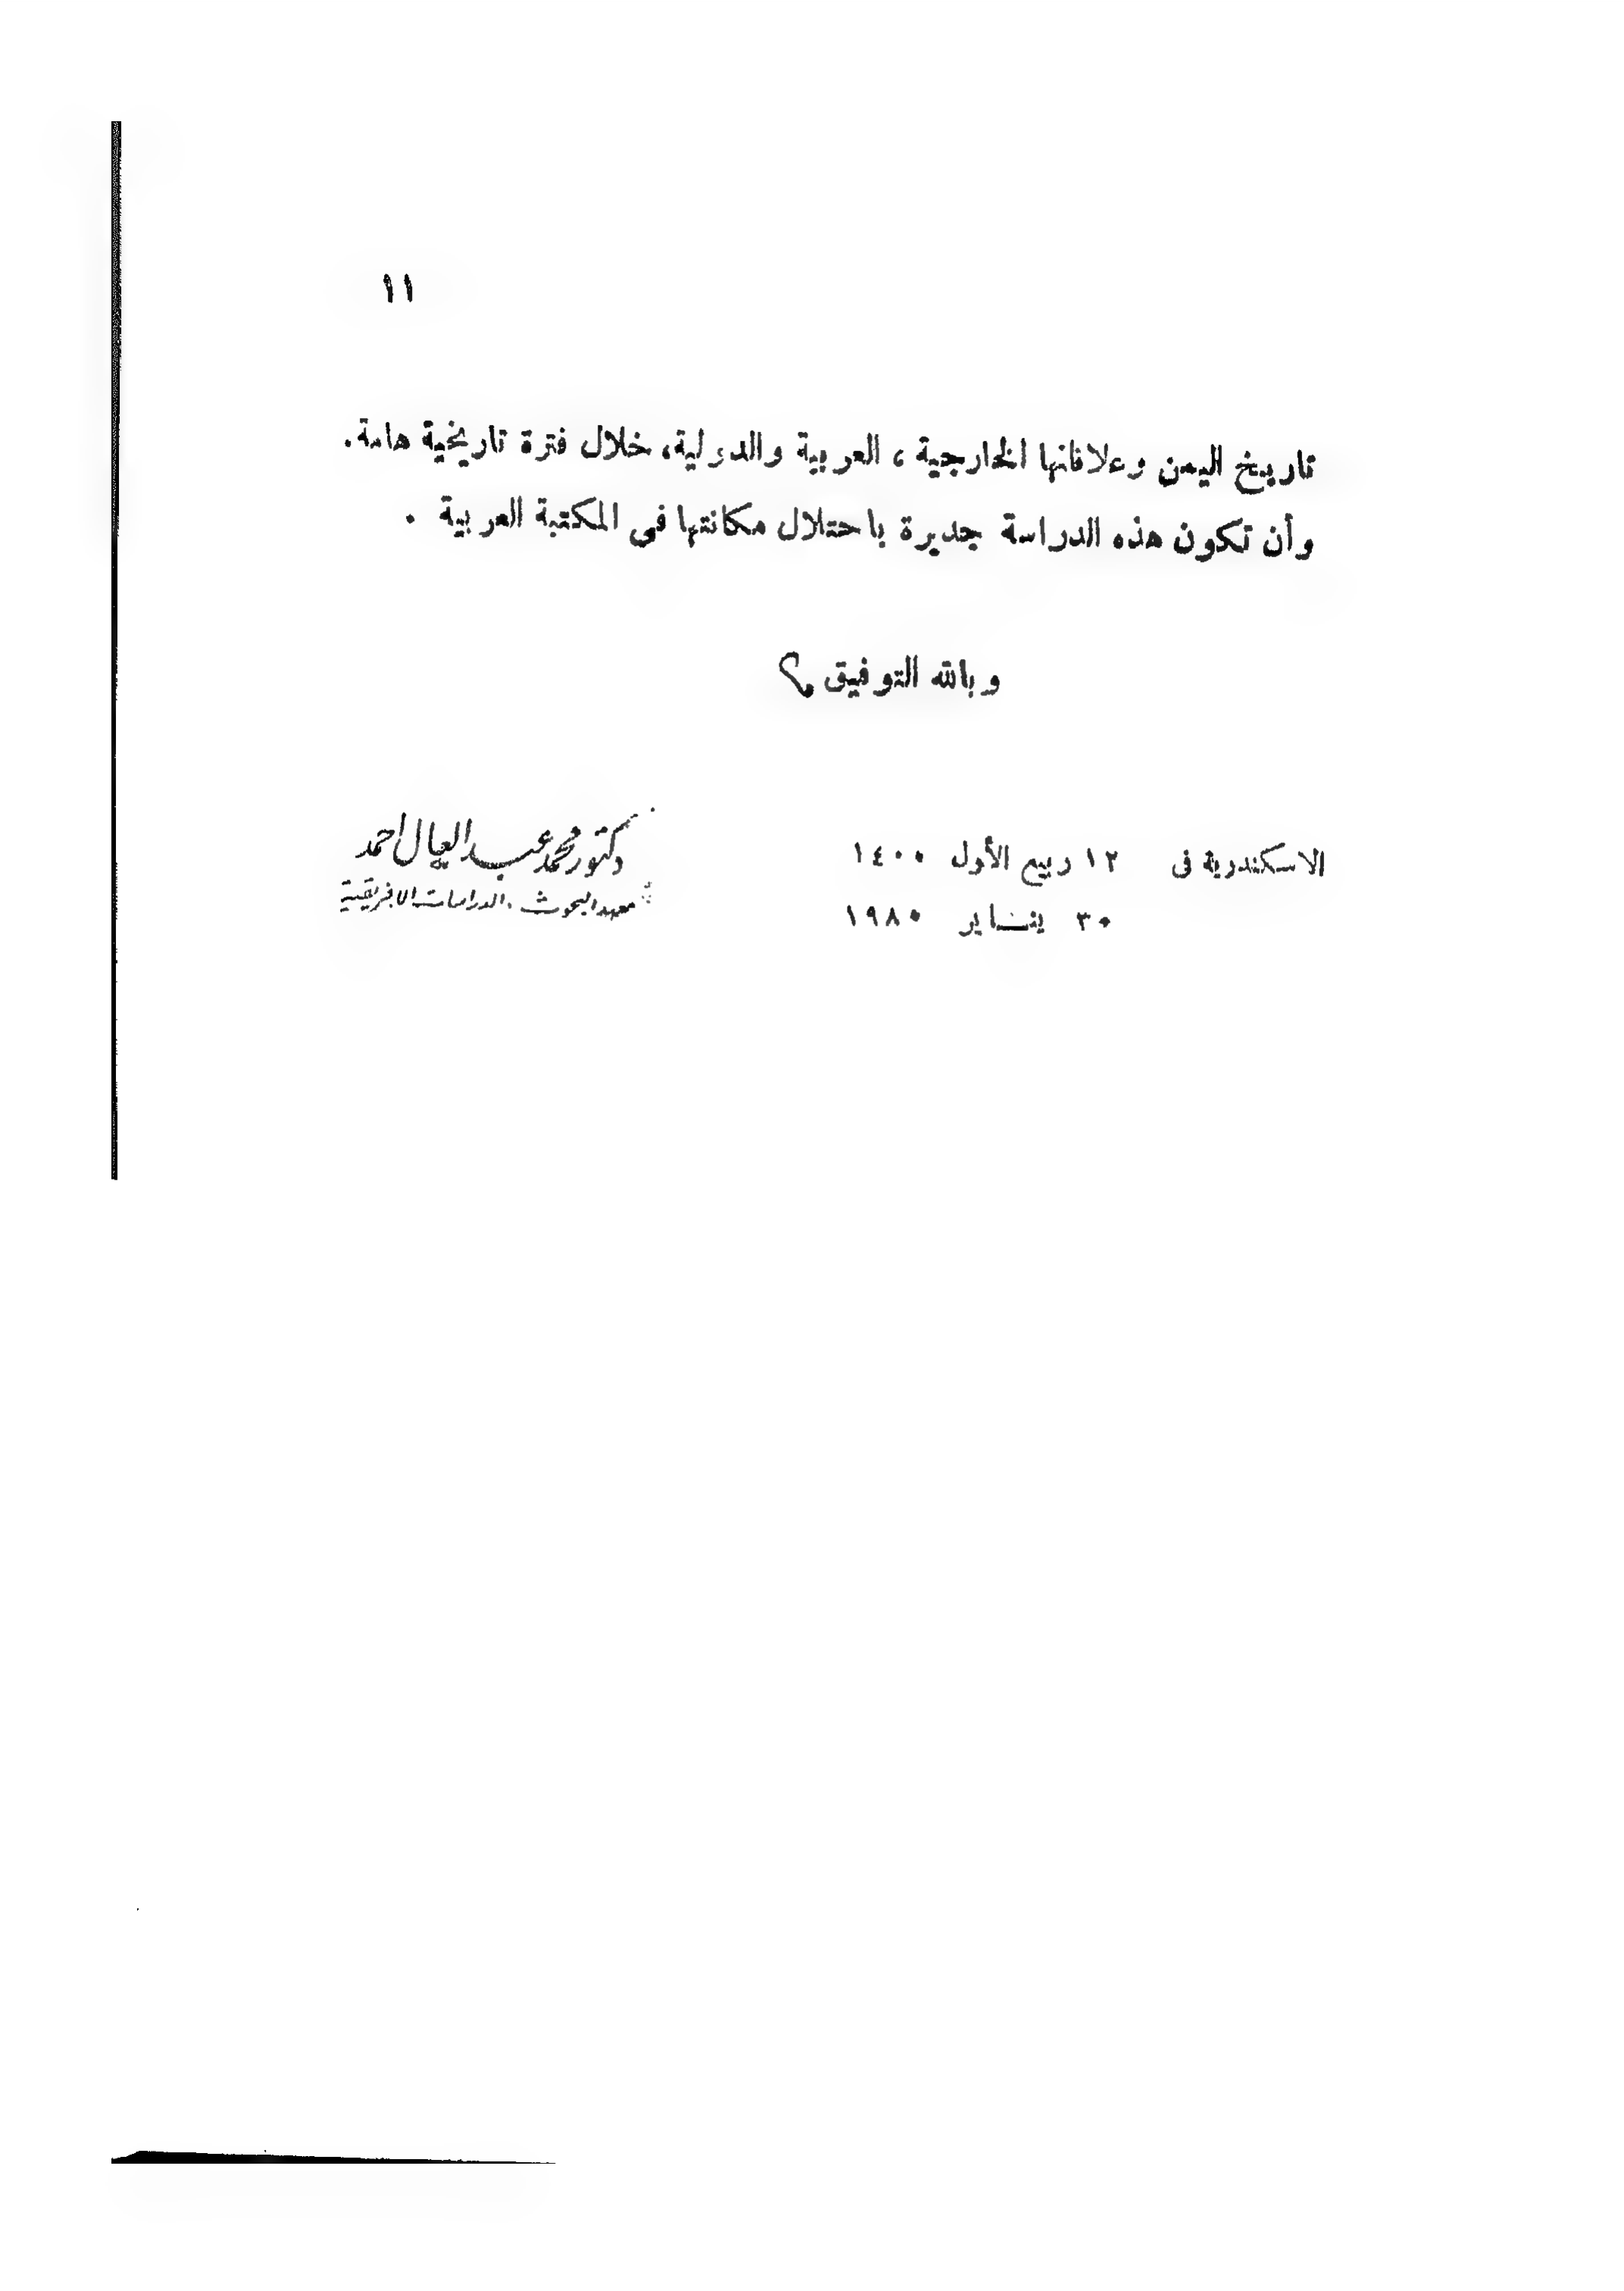 ١١
تاريخ اليمن وعلاقاتها الخارجية ، العربية والدولية، خلال فترة تاريخية هامة.
وأن تكون هذه الدراسة جديرة باحتلال مكانتها فى المكتبة العربية .
وبالله التوفيق
الاسكندرية فى ١٢ ربيع الأول ١٤٠٠
٣٠ ينـاير ١٩٨٠
دكتور محمد عبد العال احمد
معهد البحوث والدراسات الافريقية